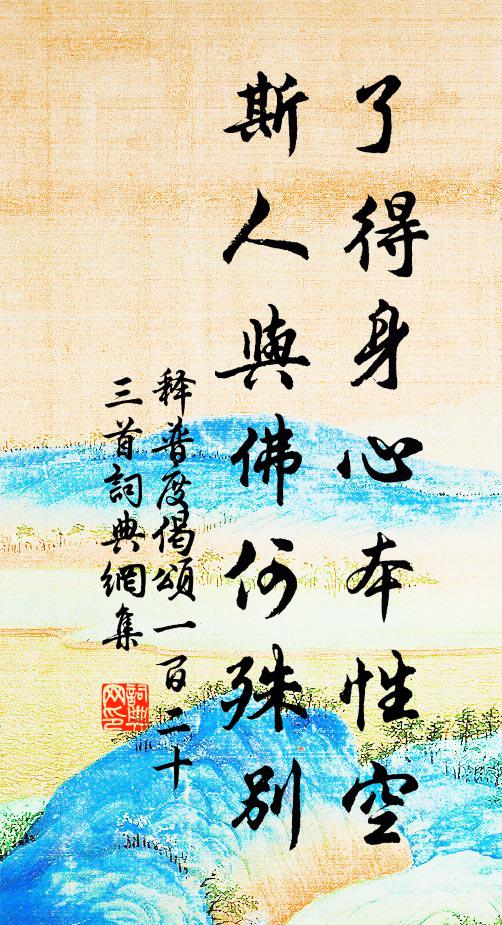 了得身心本性空
斯人與佛何殊别
释普度偈頌一百二十
三首詞典網集
詞典网印